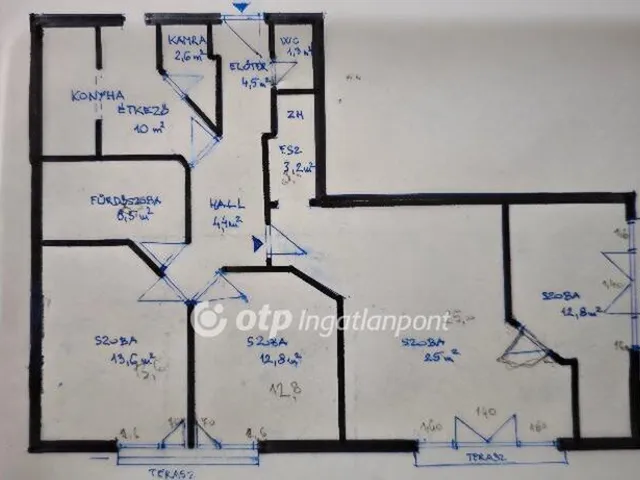 KAMRA
2,6 m²
ELŐTÉR
4,5 m²
WC
1,3 m²
KONYHA
ÉTKEZŐ
10 m²
ZH
FSZ
3,2 m²
FÜRDŐSZOBA
6,5 m²
HALL
4,4 m²
otp Ingatlanpont
SZOBA
13,6 m²
SZOBA
12,8 m²
12,8
SZOBA
25 m²
SZOBA
12,8 m²
140
160
TERASZ
TERASZ